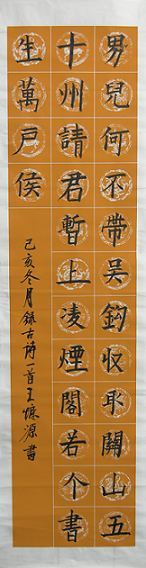 男兒何不帶吳鈎收取關山五
十州請君暫上凌煙閣若个書
生萬戶侯
己亥冬月錄古詩一首王慷源書